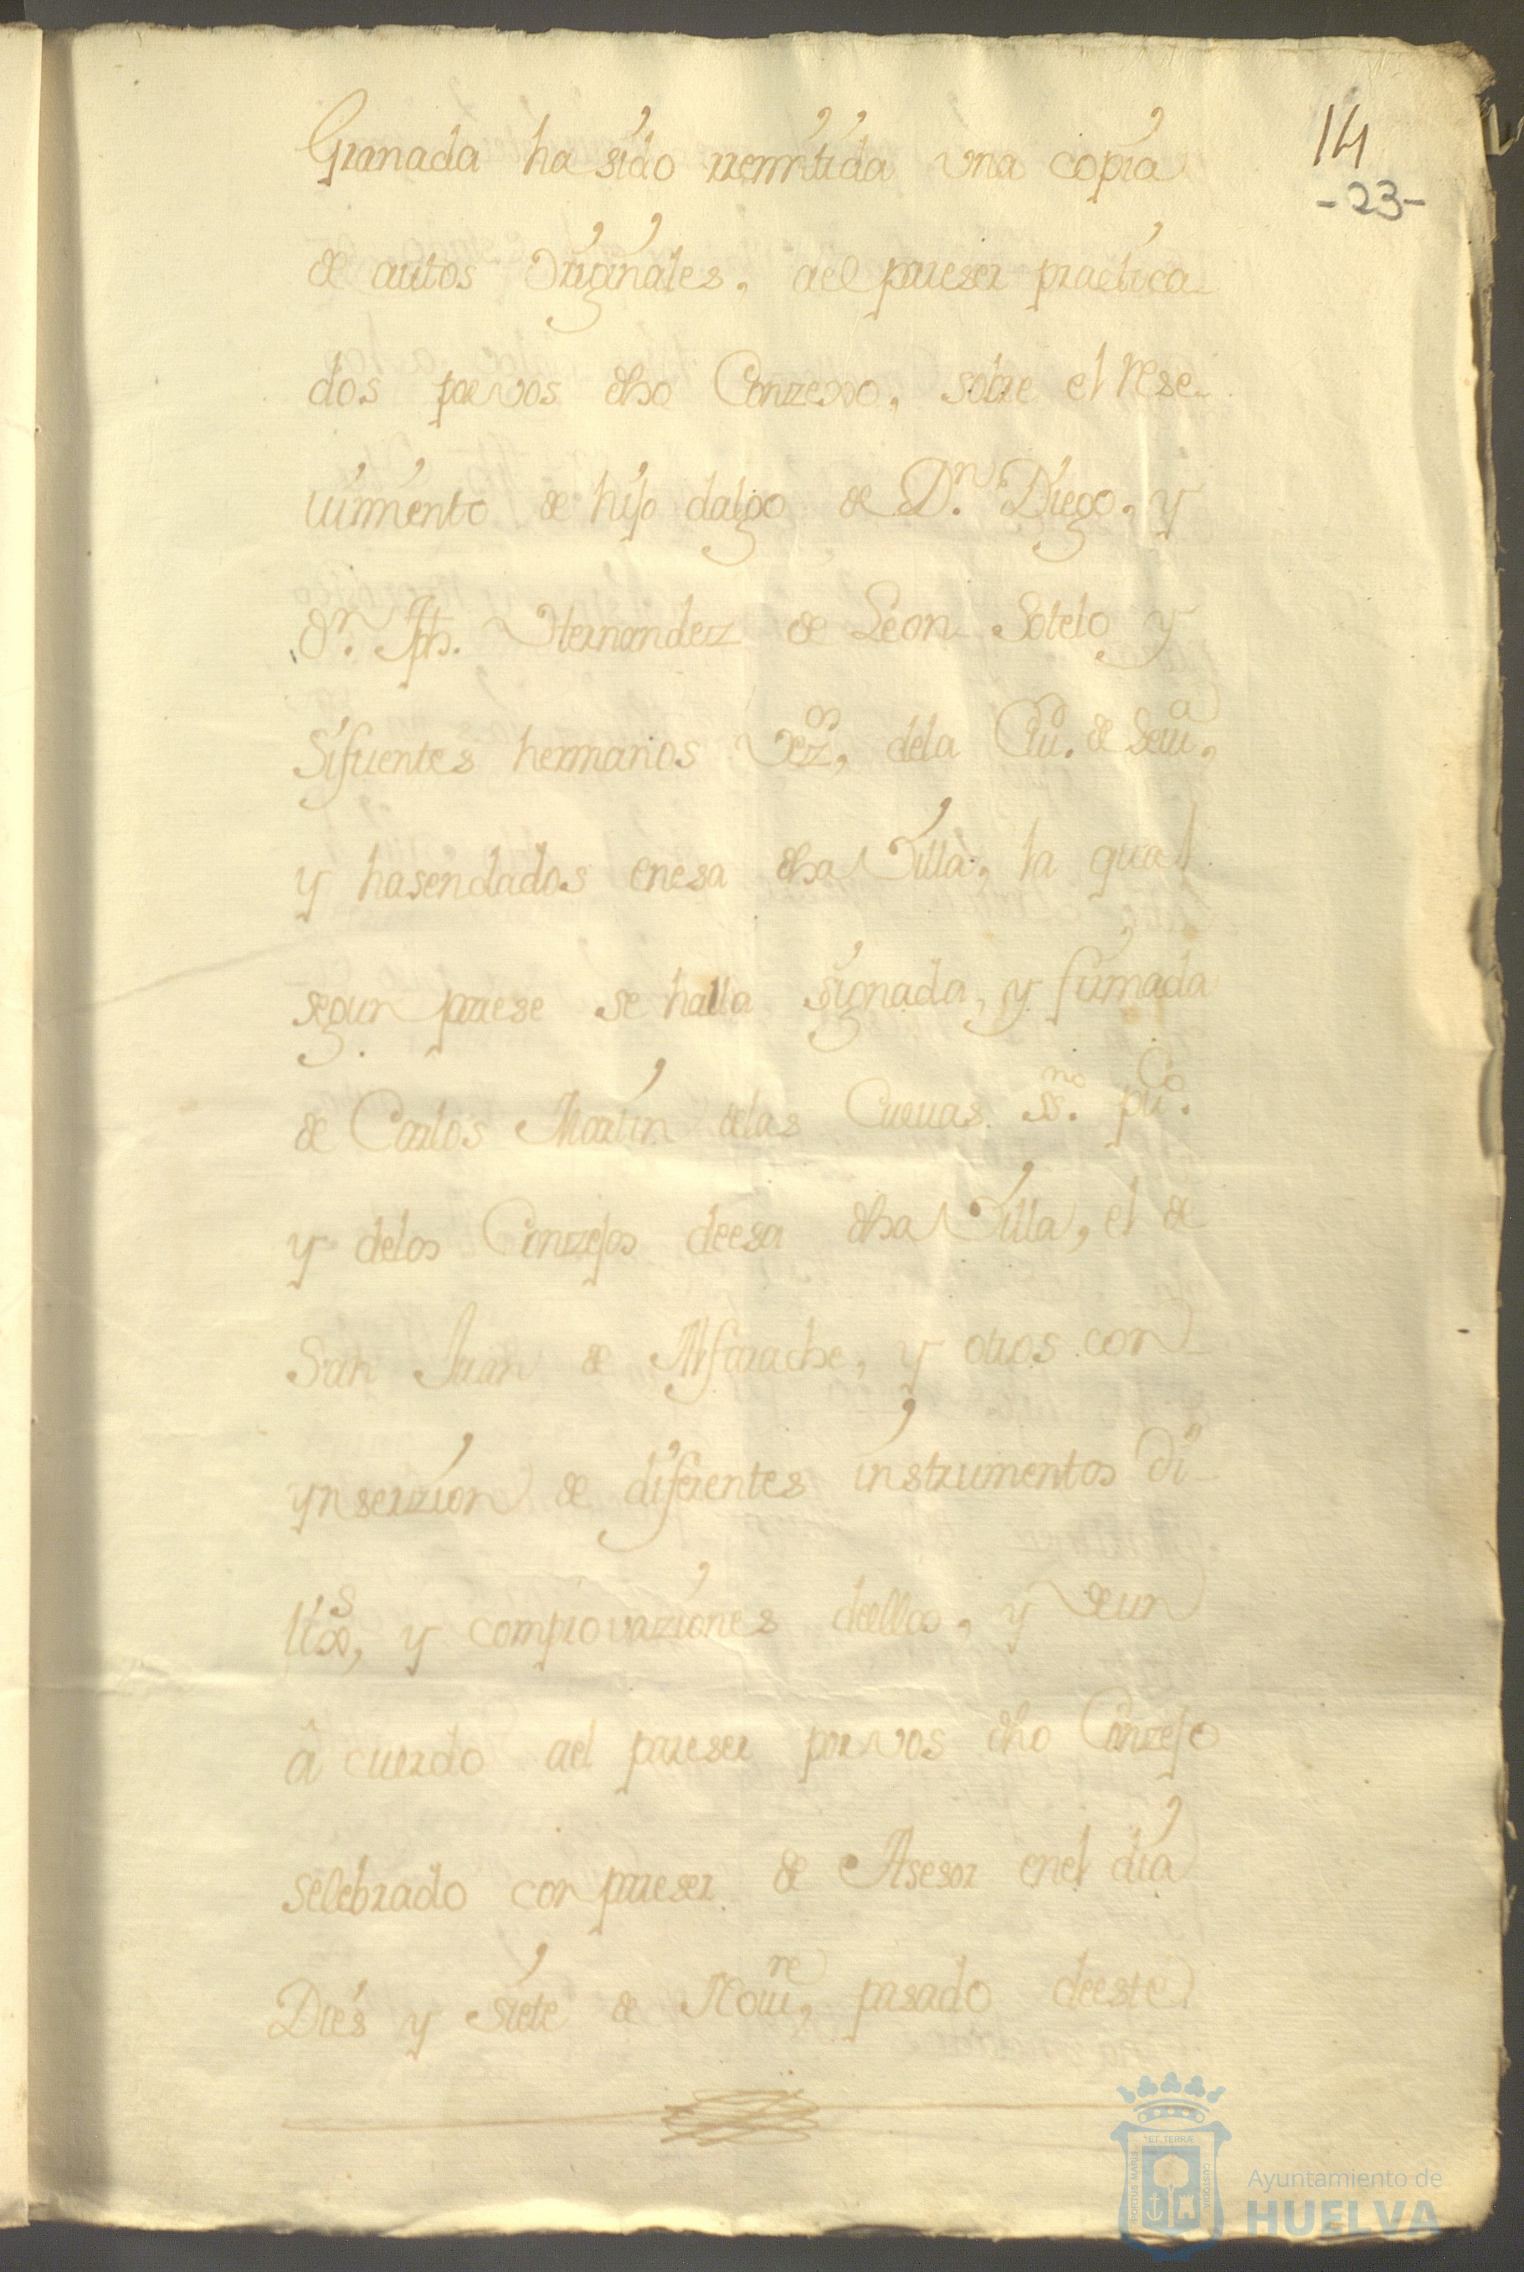 14
-23-
Granada ha sido rremitida vna copia
de autos Originales, ael pareser practica-
dos por vos dho Conzexo, sobre el rese-
uimiento de hijo dalgo de Dn. Diego, y
Dn. Jph. Hernandez de Leon Sotelo y
Sifuentes hermanos Vezos, dela Ciud. de Seuia,
y hasendados enesa dha Villa, la qual
segun parese se halla signada, y firmada
de Carlos Martin delas Cueuas ssno. puco.
y delos Conzejos deesa dha Villa, el de
San Juan de Alfarache, y otros con
ynserzion de diferentes instrumentos Di-
, y comprovaziones deellos, y de un
â cuerdo ael pareser por vos dho Conzejo
selebrado con pareser de Asesor enel dia
Dies y siete de Nouire, pasado deeste
PORTUS MARIS
ET TERRÆ
CUSTODIA
Ayuntamiento de
HUELVA